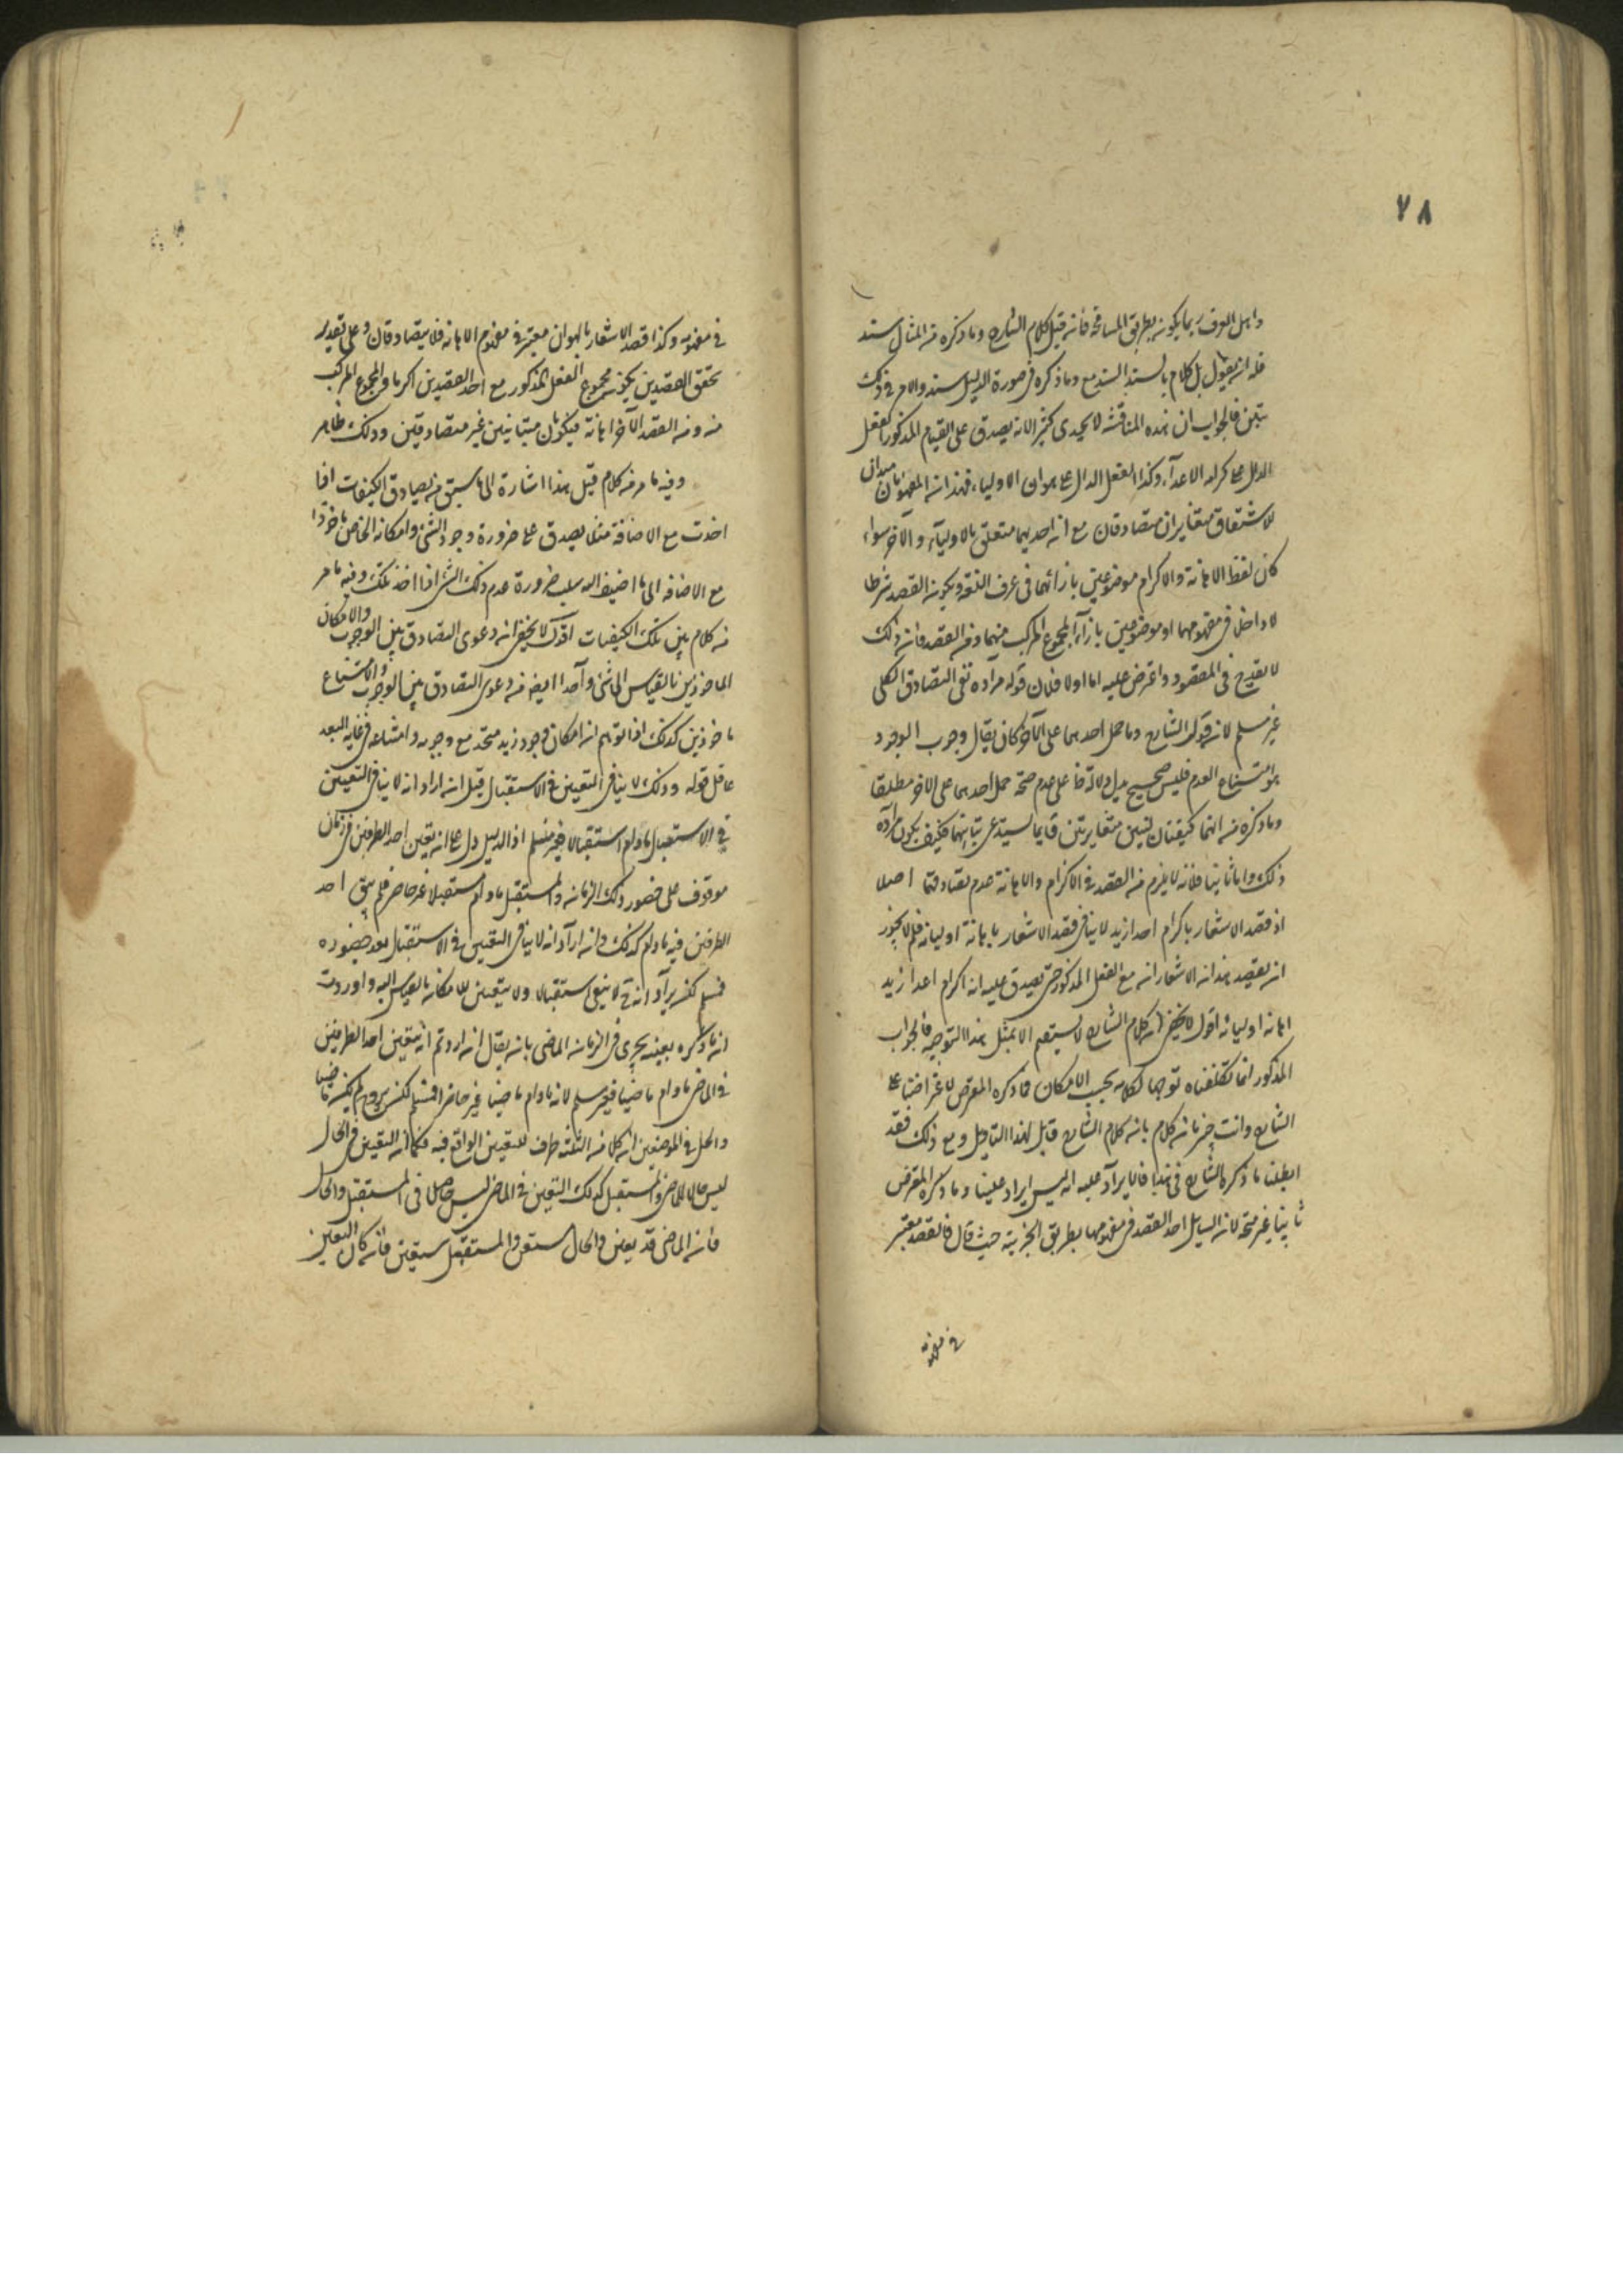 ٧٨
واهل العرف ربما يكون بطريق المسامحة فان قيل كلام الشارح وما ذكره من المثال سند
فله ان يقول بل كلام بالسند السند مع وما ذكره في صورة الدليل سند والامر في ذلك
بين فالجواب ان هذه المناقشة لا يجدى كثيرا لانه يصدق على القيام المذكور الفعل
الدال على اكرام الاعدآء وكذا الفعل الدال على هوان الاولياء فهذان المفهومان مبدآن
للاشتقاق متغايران متصادقان مع ان احديهما متعلق بالاوليآء والآخر سواء
كان لفظ الاهانة والاكرام موضوعين بازائهما في عرف اللغة ويكون القصد شرطا
لا داخلا في مفهومهما او موضوعين بازآء المجموع المركب منهما ومن القصد فان ذلك
لا يقدح في المقصود واعترض عليه اما اولا فلان قوله مراده نفى التصادق الكلى
غير مسلم لان قول الشارح وما حمل احدهما على الآخر كان يقال وجوب الوجود
هو امتناع العدم فليس صحيح يدل دلالة على عدم صحة حمل احدهما على الاخر مطلقا
وما ذكره من انهما كيفيتان لنسبتين متغايرتين قايما يستدعى تباينهما فكيف يكون مراده
ذلك واما ثانيا فلانه لا يلزم من القصد في الاكرام والاهانة عدم تصادقهما اصلا
اذ قصد الاشعار باكرام اعدا زيد لا ينافى قصد الاشعار باهانة اوليائه فلم لا يجوز
ان يقصد هذان الاشعاران مع الفعل المذكور حتى يصدق عليه انه اكرام اعدا زيد
اهانه اوليائه اقول لا يخفى ان كلام الشارح لا يستقيم الا بمثل هذا التوجيه فالجواب
المذكور انما تكلفناه توجيها لكلامه بحسب الامكان فما ذكره المعترض لا غير اختياعا
الشارح وانت خبر بان كلام بان كلام الشارح قابل لهذا التاويل ومع ذلك فقد
ابطلنا ما ذكره الشارح في هذا فالايراد عليه ليس ايراد علينا وما ذكره المعترض
ثانيا غير متجه لان السايل اخذ القصد في مفهومهما بطريق الجزئية حيث قال فالقصد معتبر
في مفهومه
في مفهومه وكذا قصد الاشعار بالهوان معتبر في مفهوم الاهانه فلا يتصادقان وعلى تقدير
تحقق القصدين يكون مجموع الفعل المذكور مع احد القصدين اكراما والمجموع المركب
منه ومن القصد الآخر اهانة فيكونان متباينين غير متصادقين وذلك ظاهر
وفيه ما مر من كلام قيل هذا اشارة الى ما سبق من تصادق الكيفيات اذا
اخذت مع الاضافة مثلا يصدق على ضرورة وجود الشئ وامكانه الخاص ماخوذا
مع الاضافه الى ما اضيف اليه سلب ضرورة عدم ذلك الشئ اذا اخذ كذلك وفيه ما مر
من كلام بين تلك الكيفيات اقول لا يخفى ان دعوى التصادق بين الوجوب والامكان
الماخوذين بالقياس الى شئ واحد ابعد من دعوى التصادق بين الوجوب والامتناع
ماخوذين كذلك اذ التوهم ان امكان وجود زيد متحد مع وجوبه وامتناعه في غاية البعد
عاقل قوله وذلك لا ينافى التعيين في الاستقبال قيل ان اراد انه لا ينافى التعيين
في الاستقبال مادام استقبالا فغير مسلم اذ الدليل دل على ان تعين احد الطرفين في زمان
موقوف على حضور ذلك الزمان والمستقبل مادام مستقبلا غير حاضر فلم يتعين احد
الطرفين فيه مادام كذلك وان اراد انه لا ينافى التعيين في الاستقبال بعد حضوره
فمسلم لكن يراد انه ح لا يبقى استقبالا ولا يتعين للامكان بالقياس اليه واوردت
ان ما ذكره بعينه يجرى في الزمان الماضى بان يقال ان اردتم انه يتعين احد الطرفين
في الماضى مادام ماضيا فغير مسلم لانه مادام ماضيا غير حاضر فمسلم لكن ح لم يكن ماضيا
والحل في الموضعين ان كلا من الثلثة ظرف للتعيين الواقع فيه فكما ان التعيين في الحال
ليس حالا للماضى والمستقبل كذلك التعيين في الماضى ليس حاصلا في المستقبل والحال
فان الماضى قد تعين والحال متعين والمستقبل سيتعين فان كان التعيين